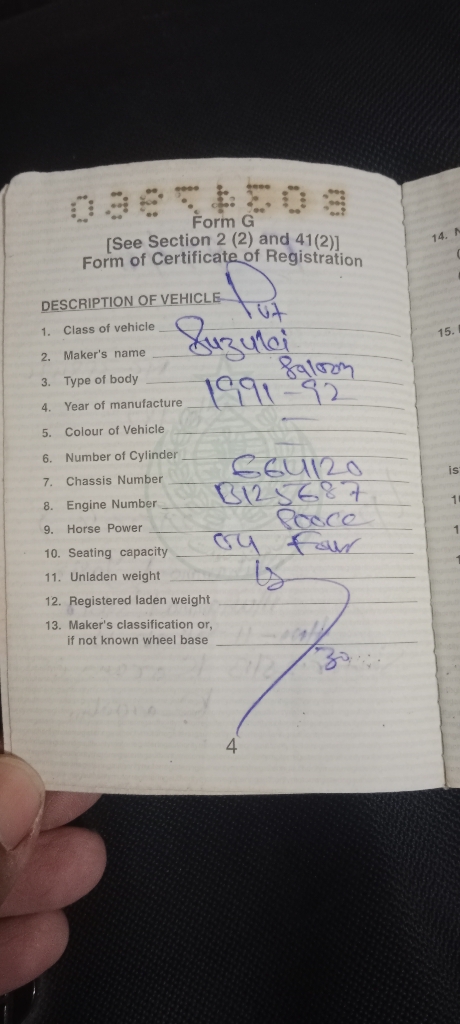 Form G
[See Section 2 (2) and 41(2)]
Form of Certificate of Registration
DESCRIPTION OF VEHICLE
1. Class of vehicle Put
2. Maker's name Suzuki
3. Type of body Saloon
4. Year of manufacture 1991-92
5. Colour of Vehicle —
6. Number of Cylinder —
7. Chassis Number 664120
8. Engine Number B125687
9. Horse Power
10. Seating capacity 04 Four
11. Unladen weight
12. Registered laden weight
13. Maker's classification or,
if not known wheel base
4
14.
15.